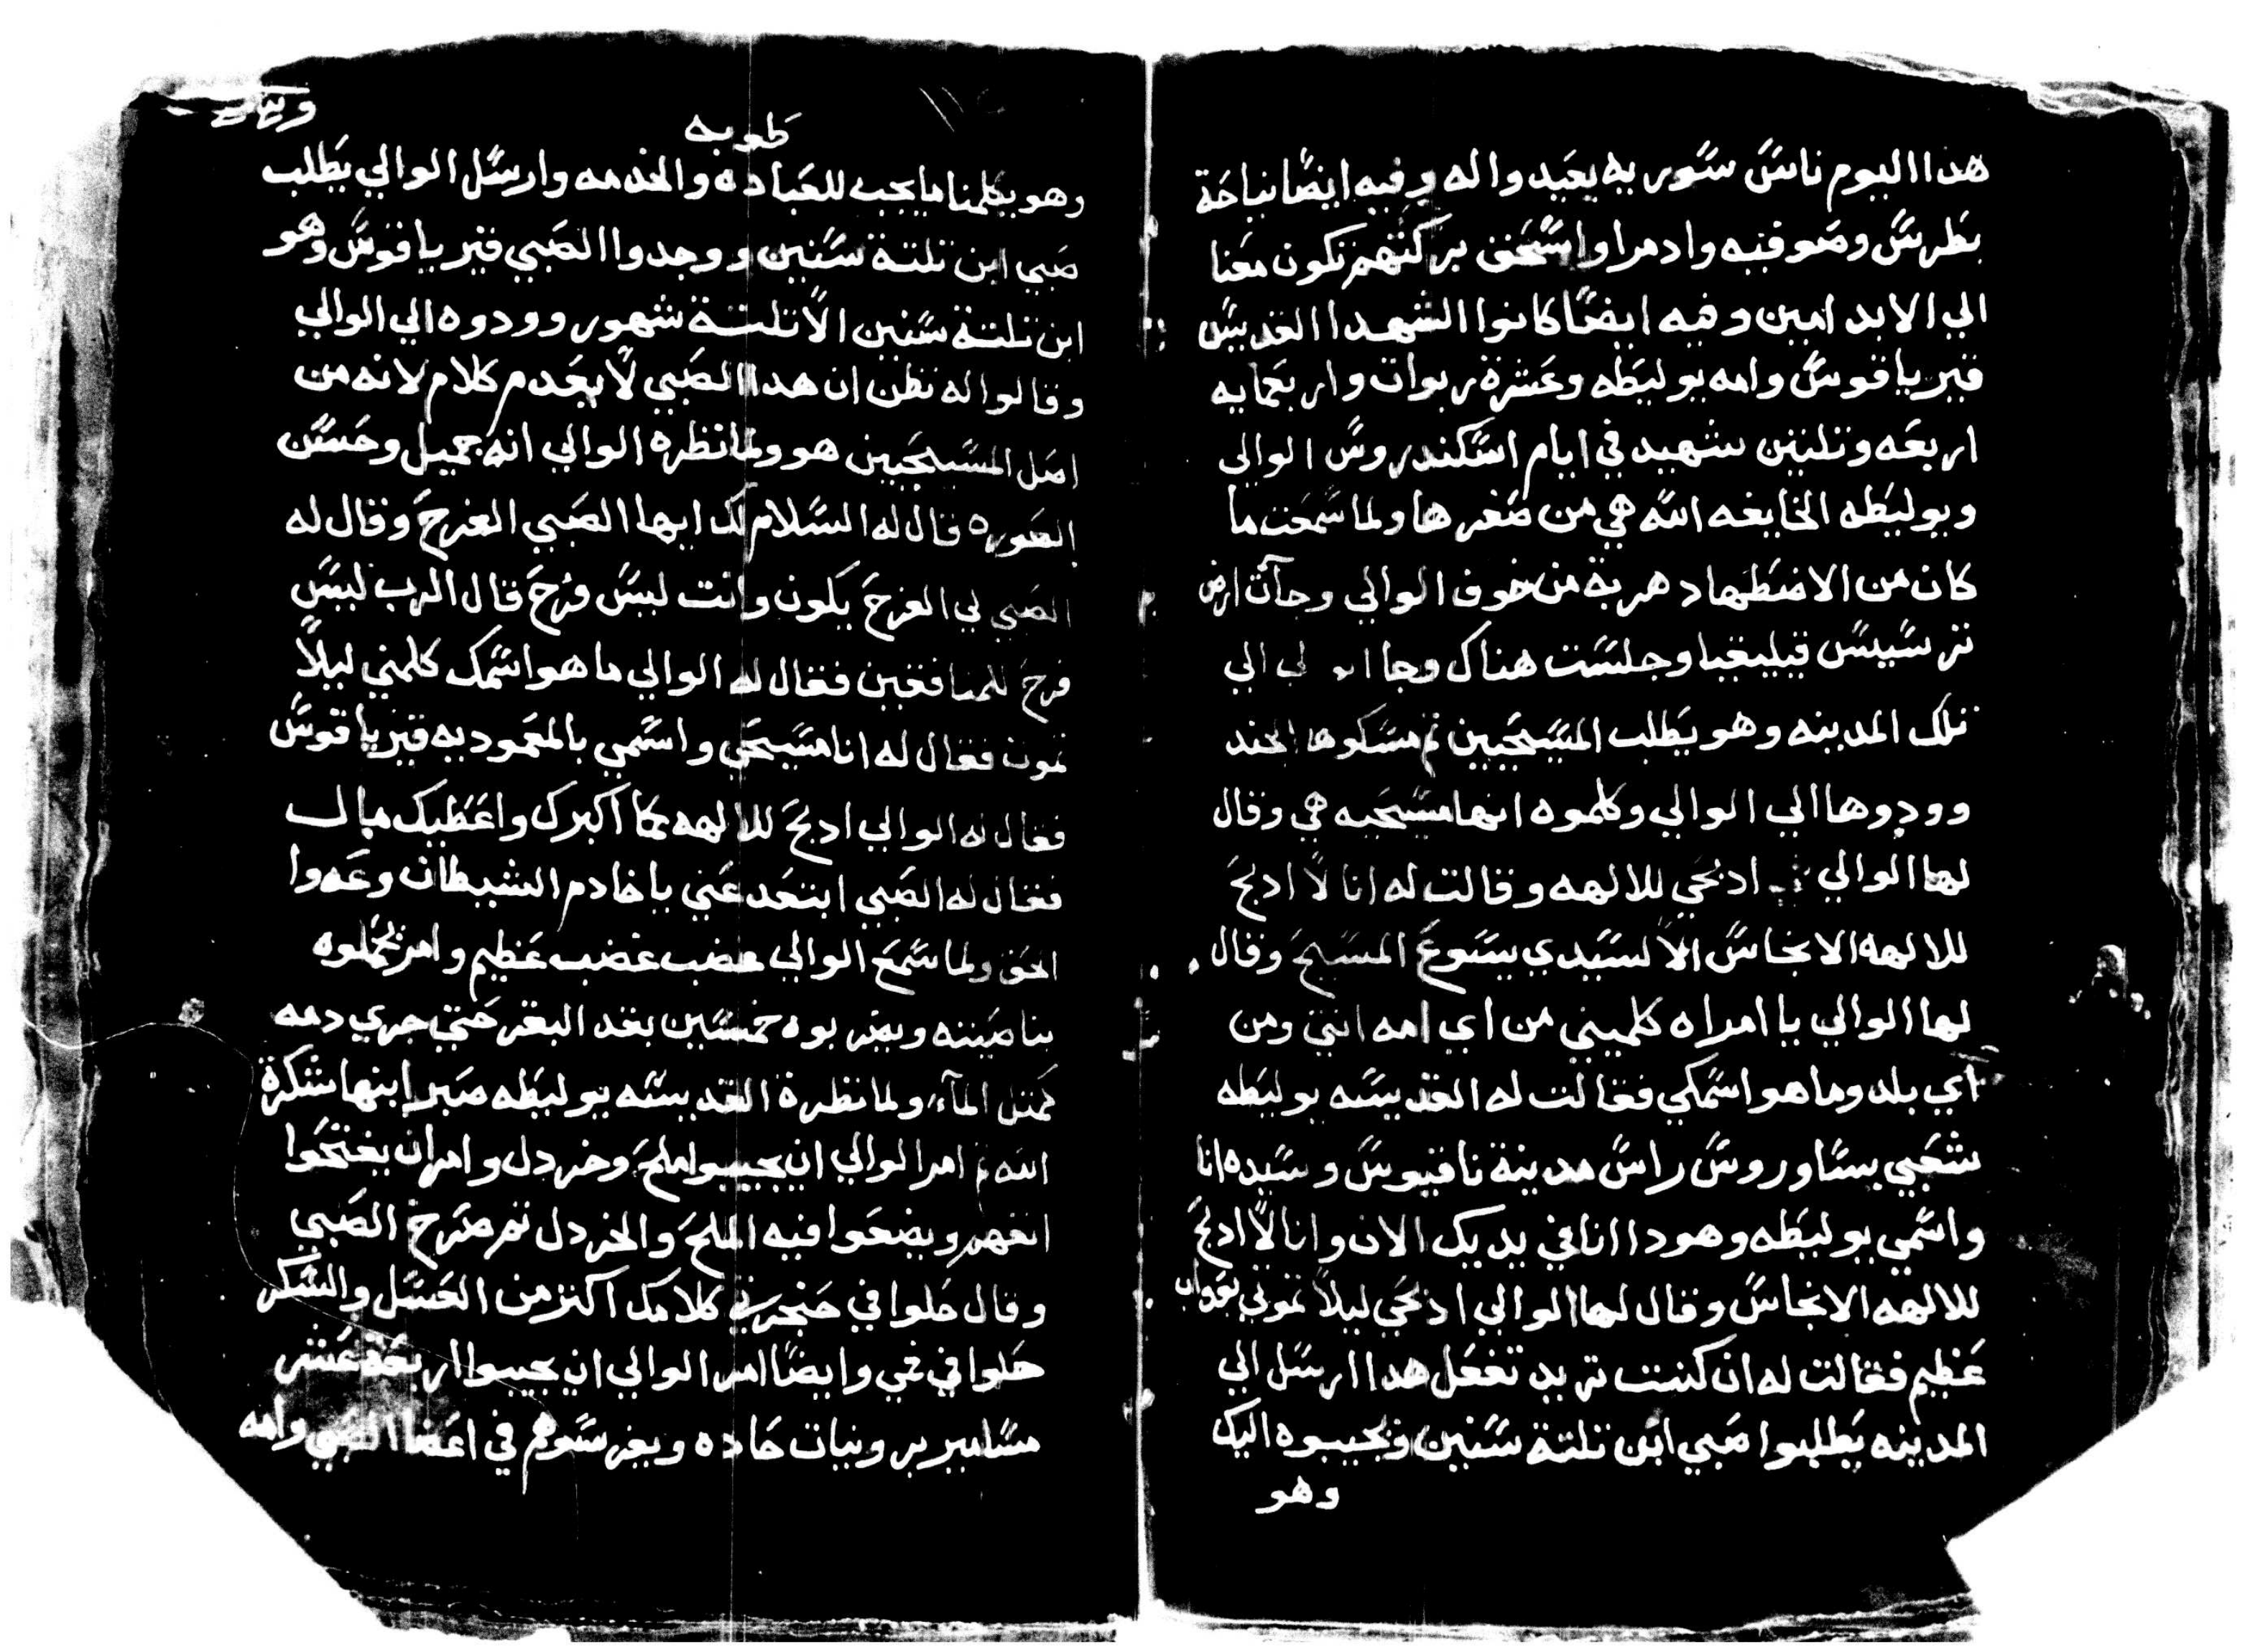 هدا اليوم ناس سوريه يعيدوا له وفيه ايضا نياحة
بطرس وصوفيه وادمرا واسحق بركتهم تكون معنا
الي الابد امين وفيه ايضا كانوا الشهدا القديس
قيرياقوس وامه يوليطه وعشرة ربوات واربعمايه
اربعه وتلتين شهيد في ايام اسكندروس الوالي
ويوليطه الخايفه الله هي من صغرها ولما سمعت ما
كان من الاضطهاد هربة من خوف الوالي وجآت ارض
ترسيس قيليقيا وجلست هناك وجا الي
تلك المدينه وهو يطلب المسيحيين تم مسكوها الجند
وودوها الي الوالي وكلموه انها مسيحيه هي وقال
لها الوالي ادبحي للالهه وقالت له انا لا ادبح
للالهه الانجاس الا لسيدي يسوع المسيح وقال
لها الوالي يا امراه كلميني من اي امه انتي ومن
اي بلد وما هو اسمكي فقالت له القديسه يوليطه
شعبي يساوروس راس مدينة ناقيوس وسيده انا
واسمي يوليطه وهودا انا في يديك الان وانا لا ادبح
للالهه الانجاس وقال لها الوالي ادبحي ليلا تموتي بعداب
عظيم فقالت له ان كنت تريد تفعل هدا ارسل الي
المدينه يطلبوا صبي ابن تلتة سنين ويجيبوه اليك
وهو
طوبه
وهو يكلمنا ما يجب للعباده والخدمه وارسل الوالي يطلب
صبي ابن تلتة سنين ووجدوا الصبي قيرياقوس وهو
ابن تلتة سنين الا تلتة شهور وودوه الي الوالي
وقالوا له نظن ان هدا الصبي لا يعدم كلام لانه من
اصل المسيحيين هو ولما نظره الوالي انه جميل وحسن
الصوره قال له السلام لك ايها الصبي الفرح وقال له
الصبي لي الفرح يكون وانت ليس فرح قال الرب ليس
فرح للمنافقين فقال له الوالي ما هو اسمك كلمني ليلا
تموت فقال له انا مسيحي واسمي بالمعموديه قيرياقوس
فقال له الوالي ادبح للالهه كما اكبرك واعطيك مال
فقال له الصبي ابتعد عني يا خادم الشيطان وعدوا
الحق ولما سمع الوالي غضب غضب عظيم وامر يحملوه
بناصيته ويضربوه خمسين بقد البقر حتي جري دمه
كمتل المآء ولما نظرة القديسه يوليطه صبر ابنها شكرة
الله تم امر الوالي ان يجيبوا ملح وخردل وامر ان يفتحوا
انفهم ويضعوا فيه الملح والخردل تم صرخ الصبي
وقال حلوا في حنجرتي كلامك اكتر من العسل والسكر
حلوا في فمي وايضا امر الوالي ان يجيبوا اربعة عشر
مسامير برونيات حاده ويغرسوهم في اعضا الصبي وامه